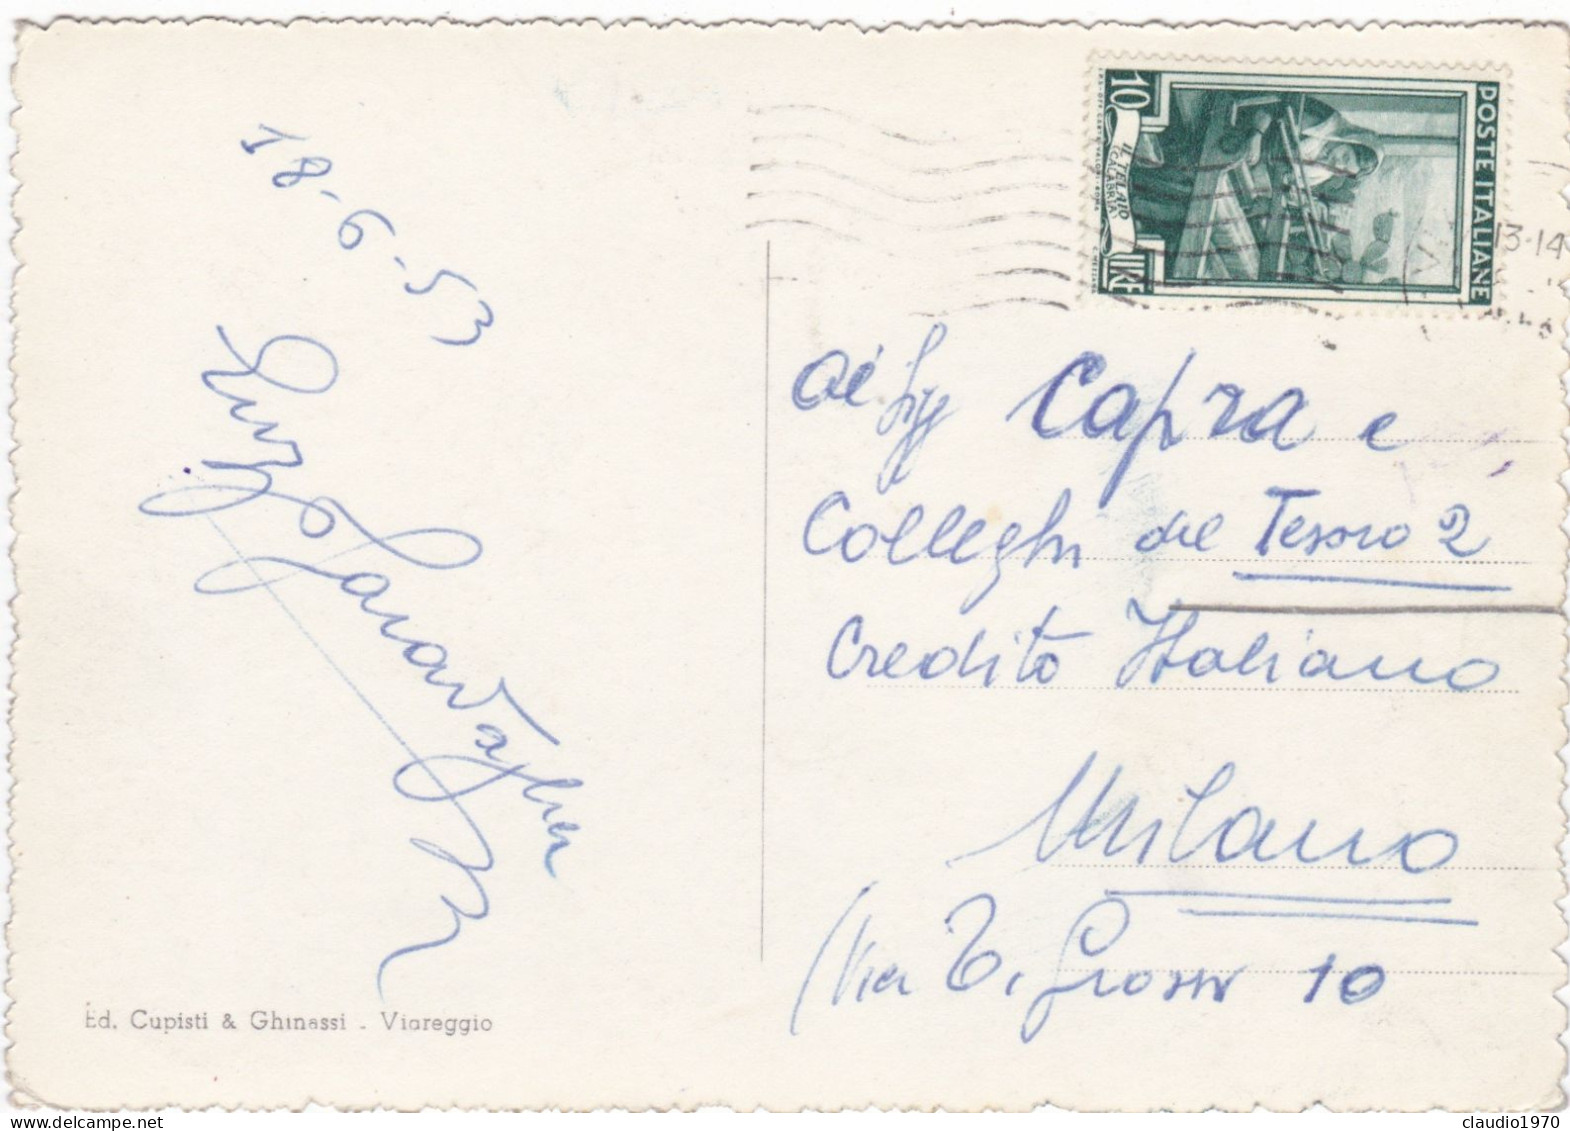 18-6-53
Ed. Cupisti & Ghinassi - Viareggio
10
POSTE ITALIANE
IL TELAIO
(CALABRIA)
LIRE
13-14
Ai Sigg Capra e
Colleghi del Tesoro 2
Credito Italiano
Milano
(Via T. Grossi 10
delcampe.net
claudio1970